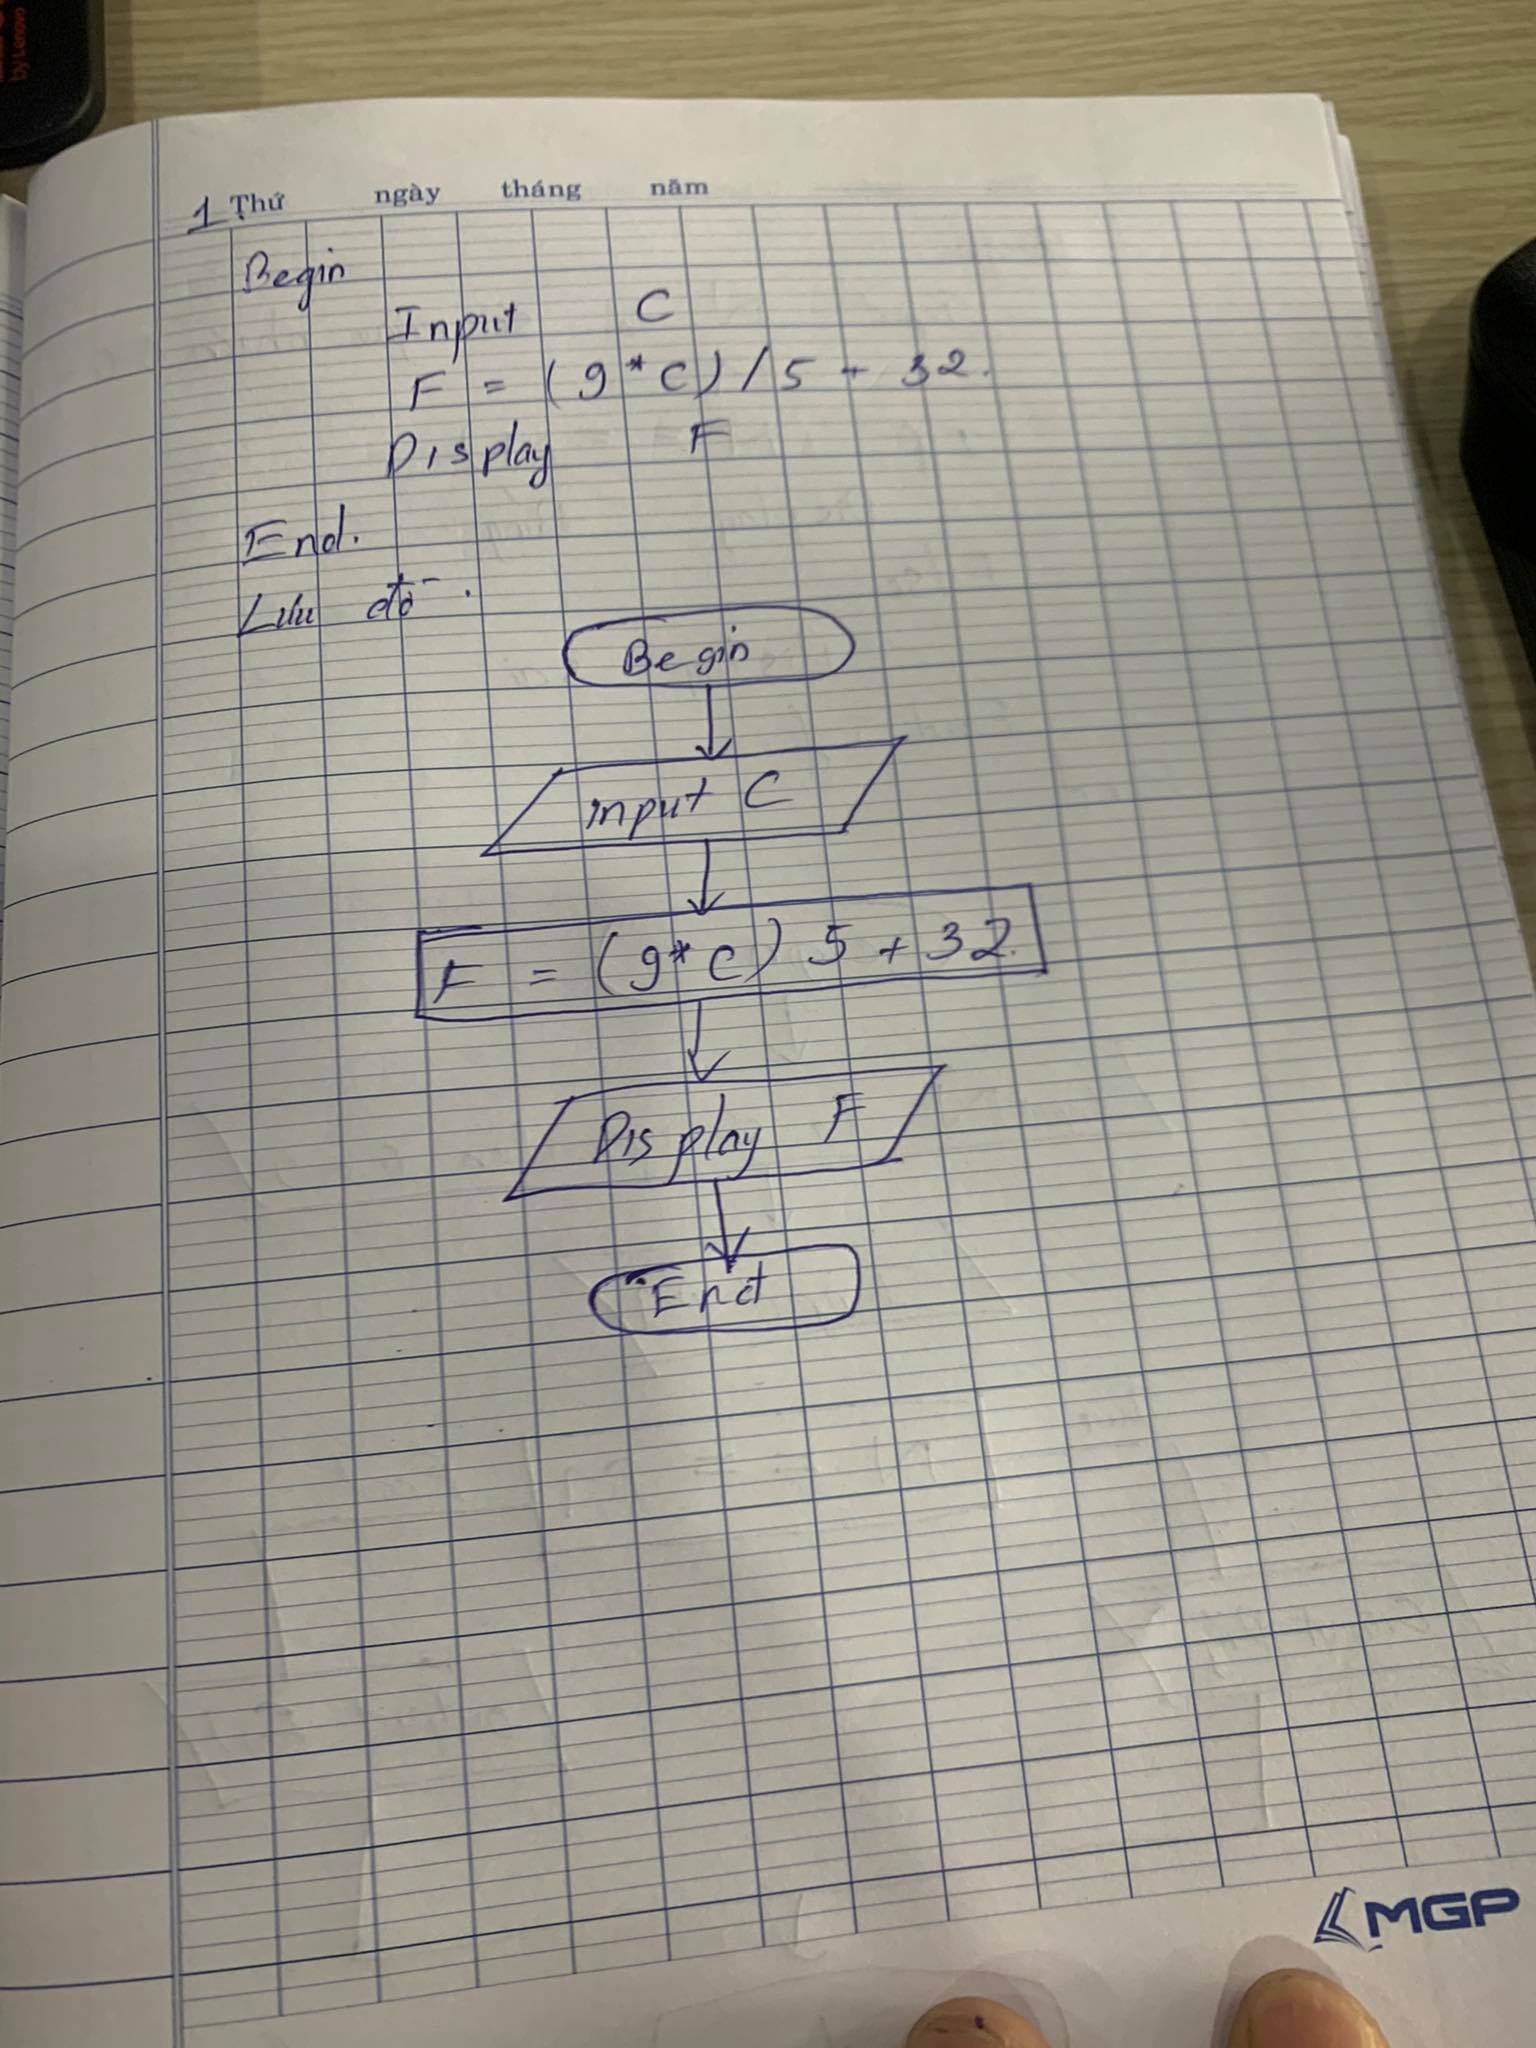 by Lenovo
1 Thứ ngày tháng năm
Begin
Input C
F = (9*C)/5 + 32.
Display F
End.
Lưu đồ.
Begin
input C
F = (9*C) 5 + 32.
Display F
End
MGP